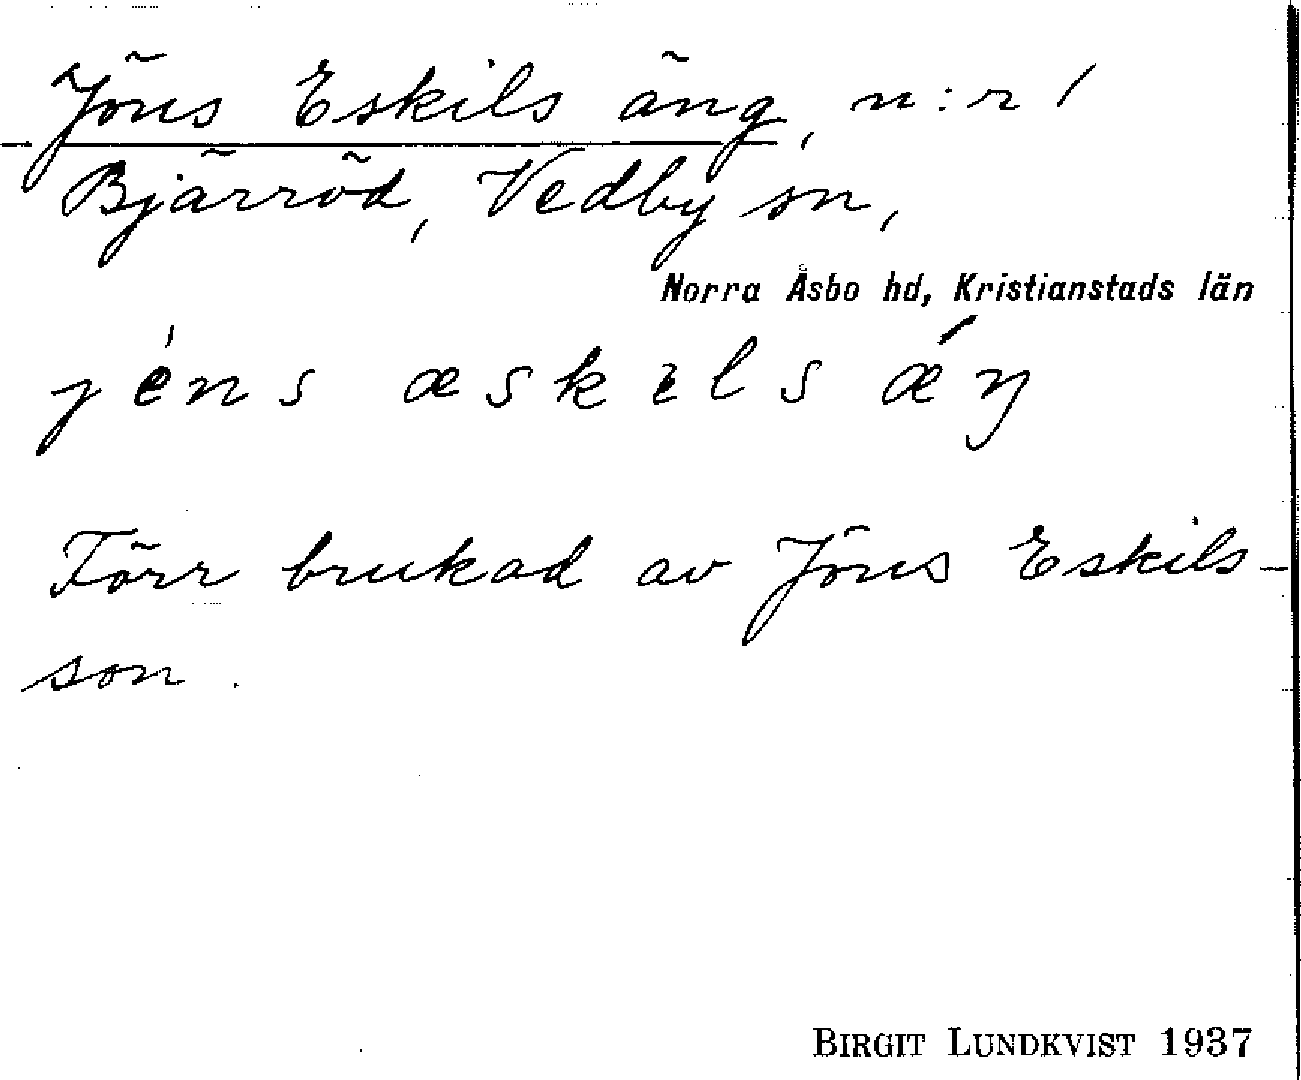 Jöns Eskils äng, n:r 1
Bjärröd, Vedby sn,
Norra Åsbo hd, Kristianstads län
jéns æskɩls ǽŋ
Förr brukad av Jöns Eskils-
son.
BIRGIT LUNDKVIST 1937